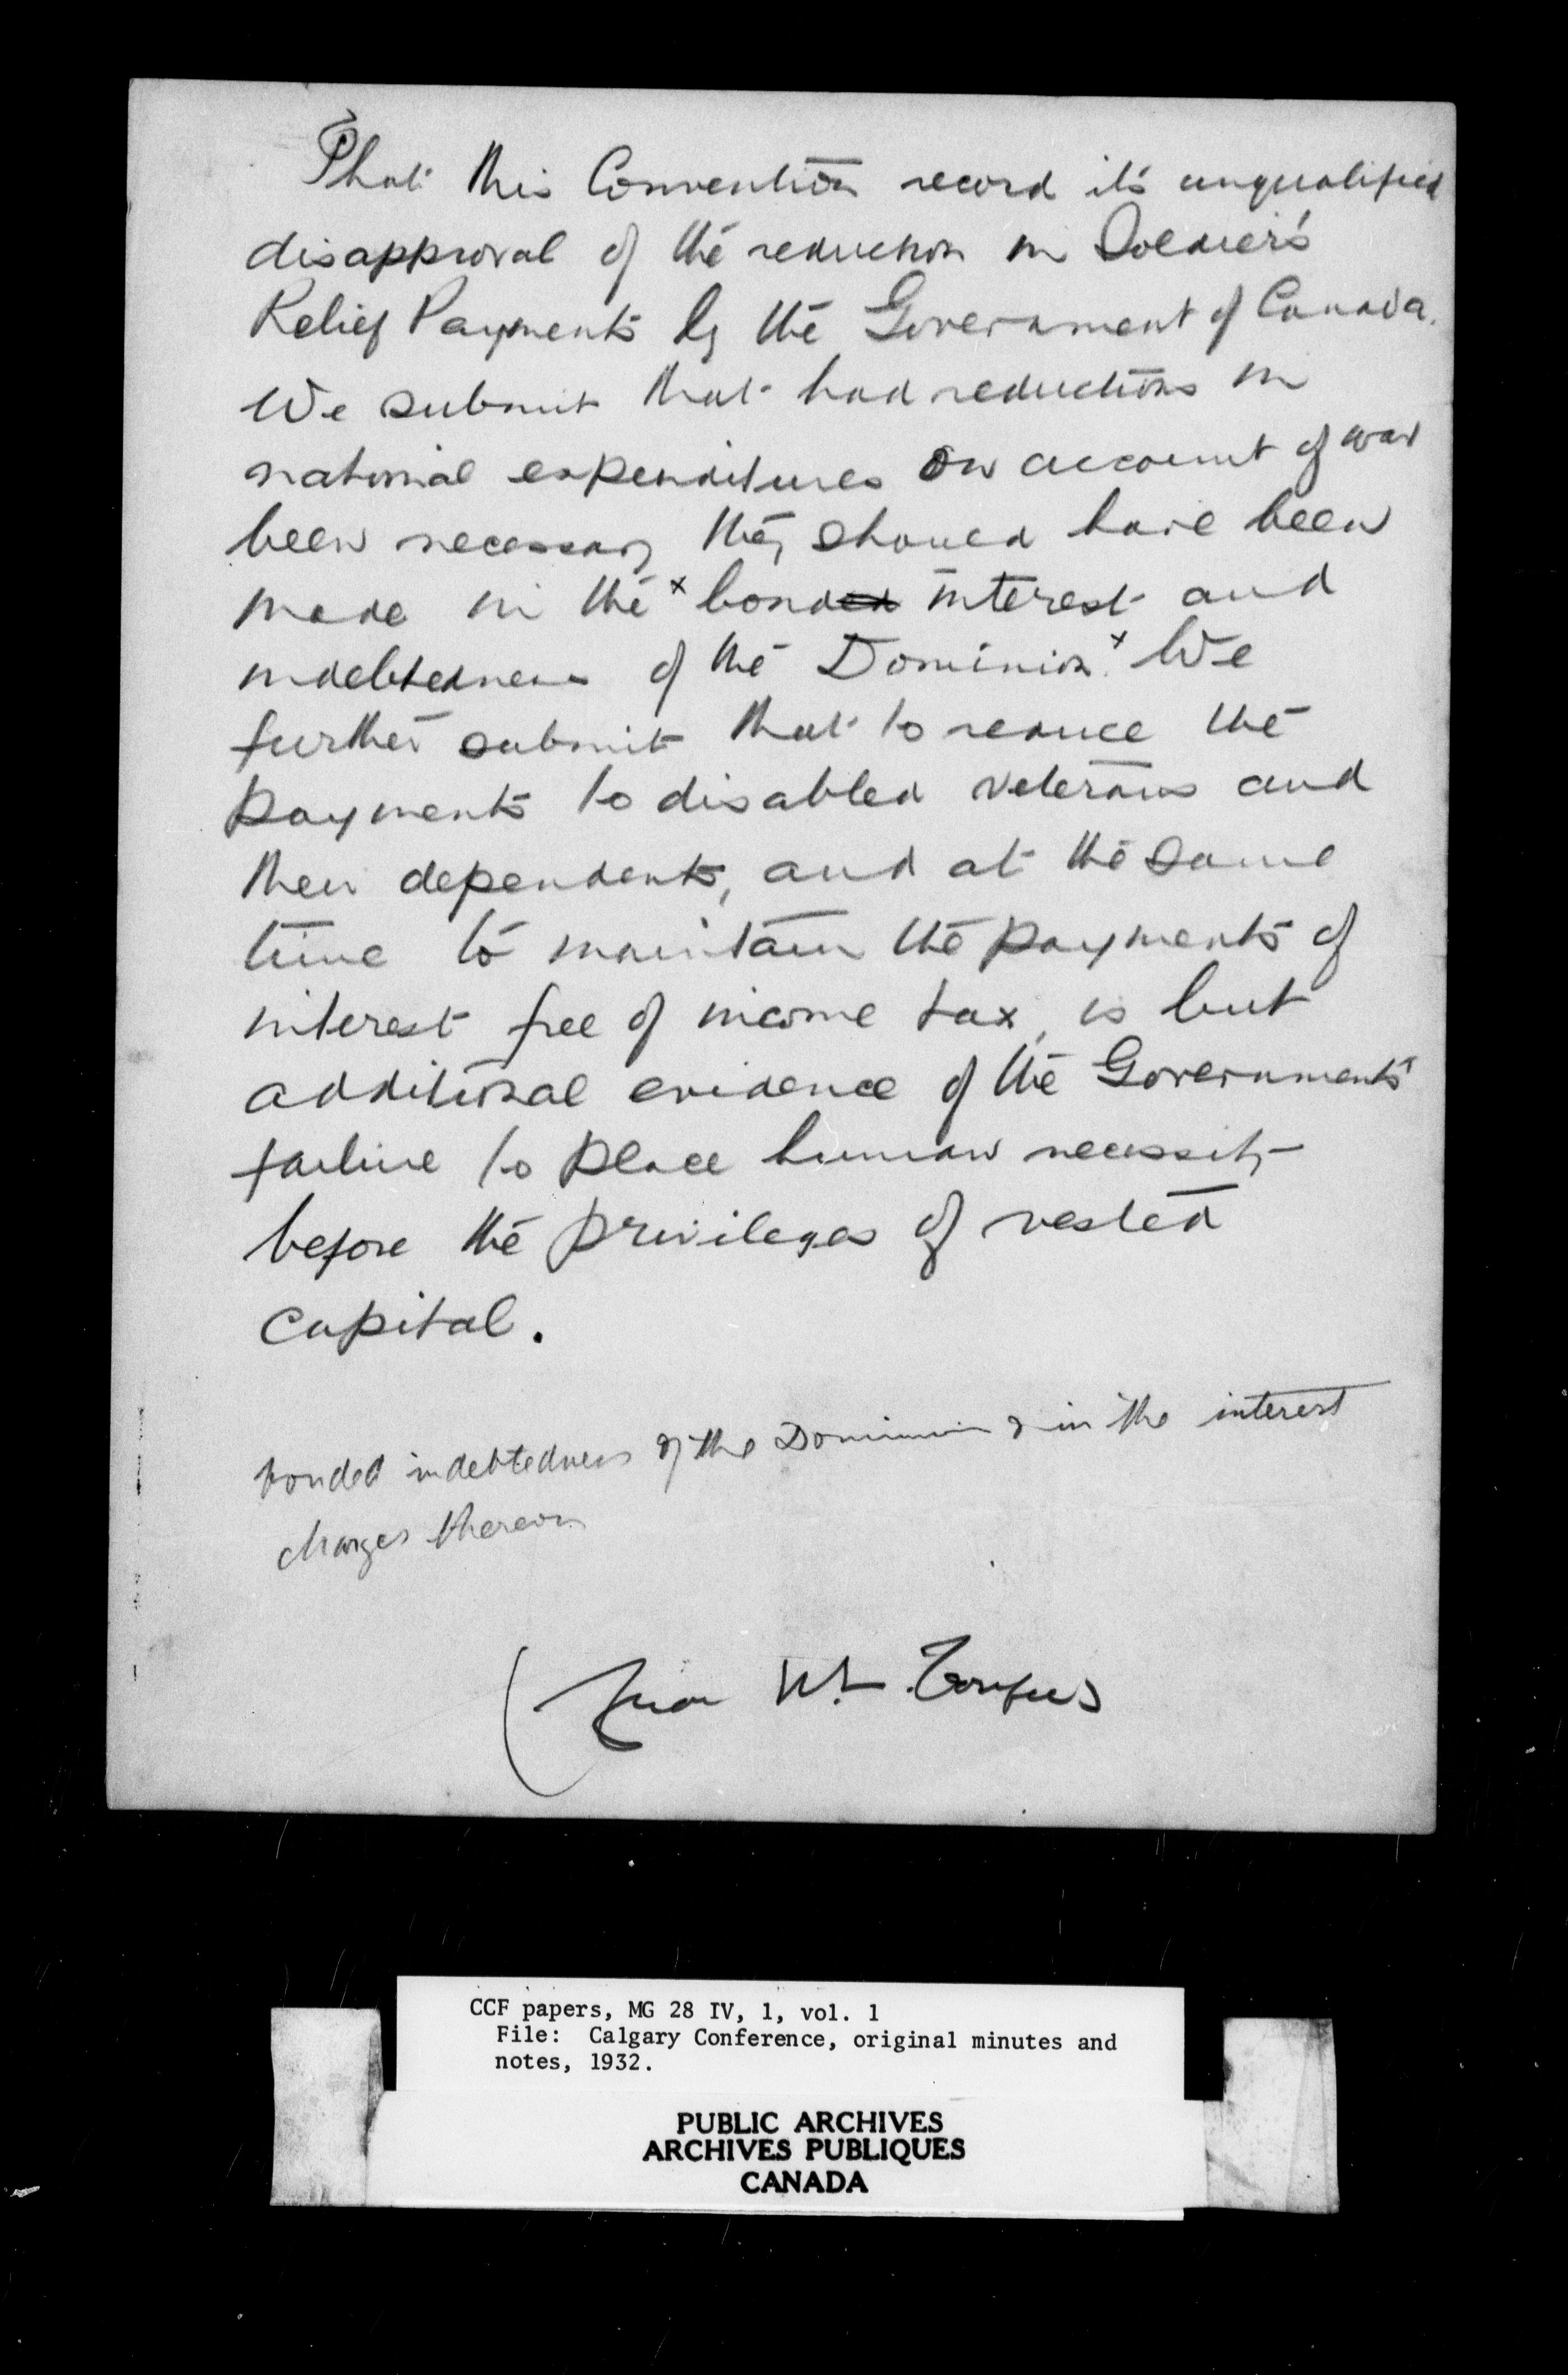 That this Convention record it's unqualified
disapproval of the reduction in Soldier's
Relief Payments by the Government of Canada.
We submit that had reductions in
national expenditures on account of war
been necessary they should have been
made in the x bonded interest and
indebtedness of the Dominion. x We
further submit that to reduce the
payments to disabled veterans and
their dependents, and at the same
time to maintain the payments of
interest free of income tax, is but
additional evidence of the Governments
failure to place human necessity
before the privileges of vested
capital.
bonded indebtedness of the Dominion & in the interest
charges thereon
CCF papers, MG 28 IV, 1, vol. 1
File: Calgary Conference, original minutes and
notes, 1932.
PUBLIC ARCHIVES
ARCHIVES PUBLIQUES
CANADA